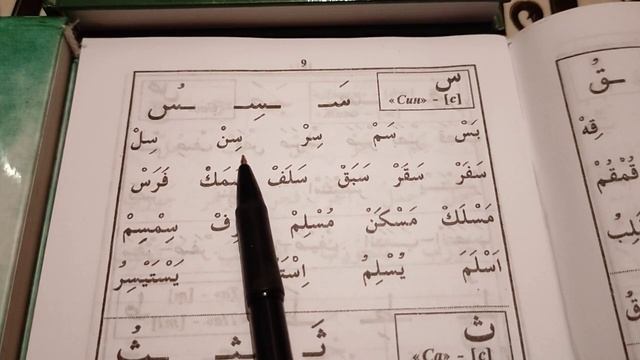 9
س
«Син» - [с]
سَـ ـسِـ ـسُ
بَسْ سَمْ سِرْ سِنْ سِلْ
سَفَرْ سَقَرْ سَبَقْ سَلَفْ فَرَسْ
مَسْلَكْ مَسْكَنْ مُسْلِمْ سِمْسِمْ
اَسْلَمَ يُسْلِمُ يَسْتَيْسِرُ
ث
«Са» - [с]
ثَـ ـثِـ ـثُ
ـقُ
قِهْ
قُمْقُمْ